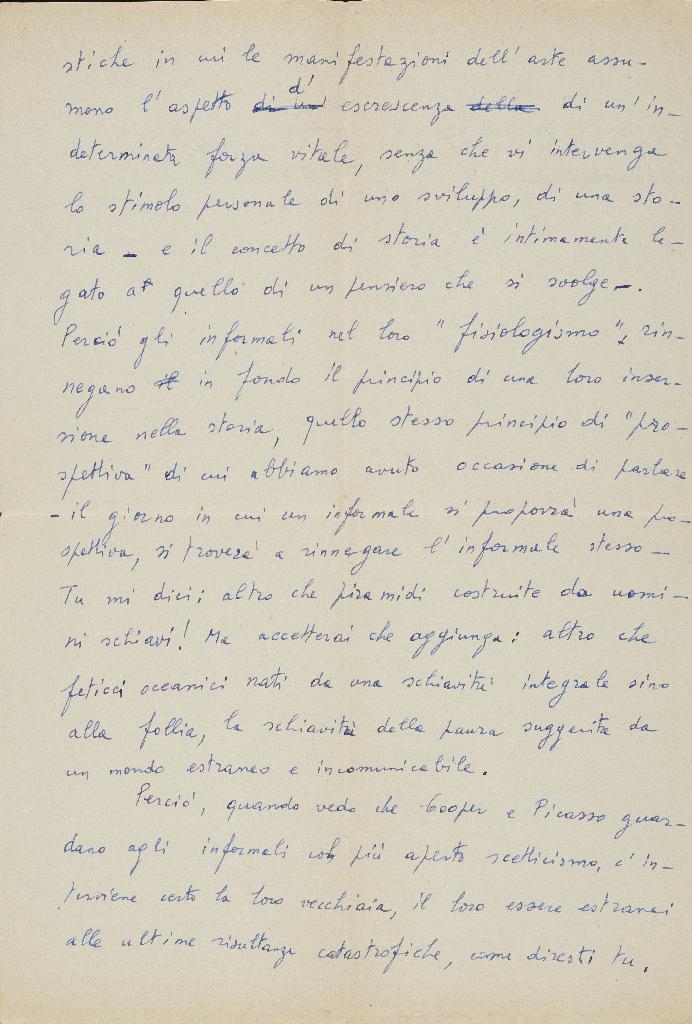 stiche in cui le manifestazioni dell'arte assu-
mono l'aspetto di un' d' escrescenza della di un'in-
determinata forza vitale, senza che vi intervenga
lo stimolo personale di uno sviluppo, di una sto-
ria - e il concetto di storia è intimamente le-
gato a quello di un pensiero che si svolge -.
Perciò gli informali nel loro "fisiologismo", rin-
negano il in fondo il principio di una loro inser-
zione nella storia, quello stesso principio di "pro-
spettiva" di cui abbiamo avuto occasione di parlare
- il giorno in cui un informale si proporrà una pro-
spettiva, si troverà a rinnegare l'informale stesso -
Tu mi dici: altro che piramidi costruite da uomi-
ni schiavi! Ma accetterai che aggiunga: altro che
feticci oceanici nati da una schiavitù integrale sino
alla follia, la schiavitù della paura suggerita da
un mondo estraneo e incomunicabile.
Perciò, quando vedo che Cooper e Picasso guar-
dano agli informali con più aperto scetticismo, c'in-
terviene certo la loro vecchiaia, il loro essere estranei
alle ultime risultanze catastrofiche, come diresti tu.